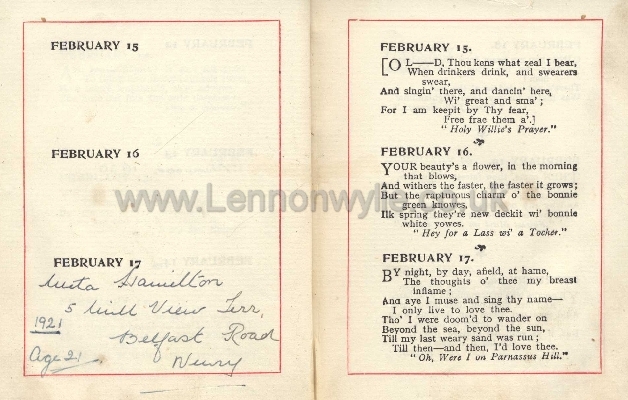 FEBRUARY 15
FEBRUARY 16
FEBRUARY 17
Meta Hamilton
5 Mill View Terr,
1921
Belfast Road
Age 21
Newry
FEBRUARY 15.
[O L——D, Thou kens what zeal I bear,
When drinkers drink, and swearers
swear,
And singin' there, and dancin' here,
Wi' great and sma';
For I am keepit by Thy fear,
Free frae them a'.]
"Holy Willie's Prayer."
FEBRUARY 16.
YOUR beauty's a flower, in the morning
that blows,
And withers the faster, the faster it grows;
But the rapturous charm o' the bonnie
green knowes,
Ilk spring they're new deckit wi' bonnie
white yowes.
"Hey for a Lass wi' a Tocher."
FEBRUARY 17.
BY night, by day, afield, at hame,
The thoughts o' thee my breast
inflame;
And aye I muse and sing thy name—
I only live to love thee.
Tho' I were doom'd to wander on
Beyond the sea, beyond the sun,
Till my last weary sand was run;
Till then—and then, I'd love thee.
"Oh, Were I on Parnassus Hill."
www.Lennonwylie.co.uk